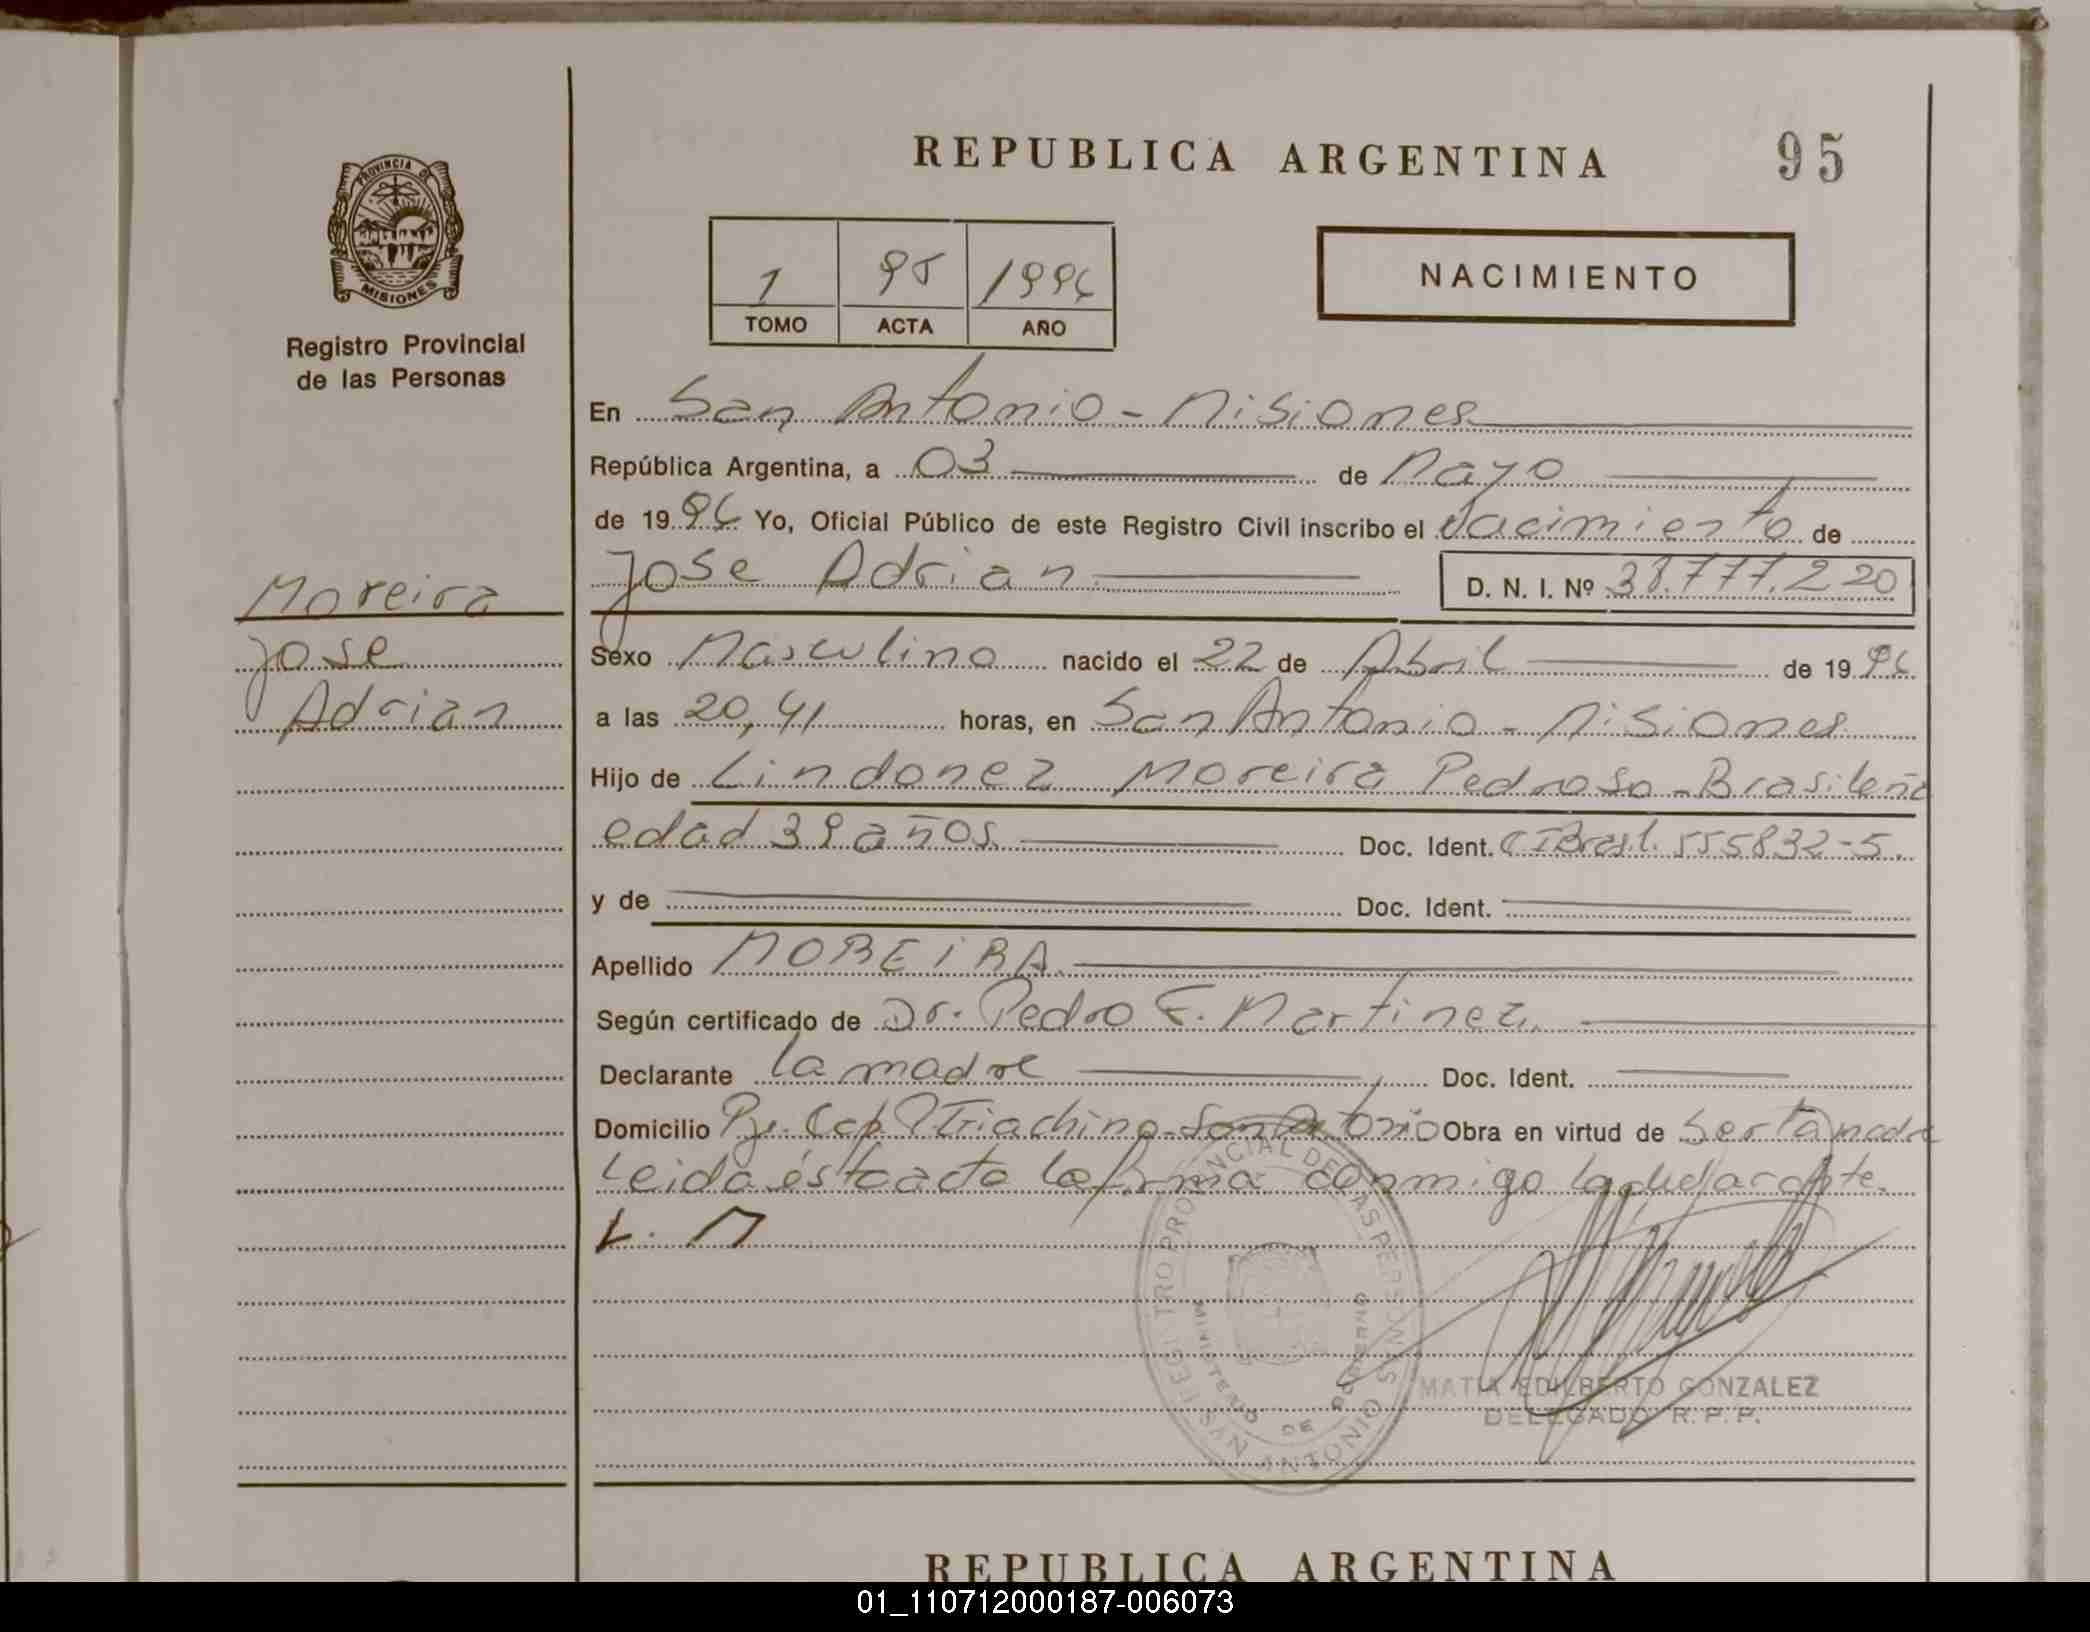 REPUBLICA ARGENTINA 95
PROVINCIA DE MISIONES
Registro Provincial
de las Personas
1 95 1996
TOMO ACTA AÑO
NACIMIENTO
En San Antonio - Misiones
República Argentina, a 03 de Mayo
de 19 96 Yo, Oficial Público de este Registro Civil inscribo el Nacimiento de
Jose Adrian D. N. I. Nº 38.777.220
Moreira
Jose
Adrian
Sexo Masculino nacido el 22 de Abril de 19 96
a las 20,41 horas, en San Antonio - Misiones
Hijo de Lindonez Moreira Pedroso - Brasileña
edad 39 años. Doc. Ident. CI Brasil. 555832-5.
y de Doc. Ident.
Apellido MOREIRA
Según certificado de Dr. Pedro F. Martinez.
Declarante la madre Doc. Ident.
Domicilio San Antonio Obra en virtud de Ser la madre
Leida ésta acta la firma conmigo la declarante.
L. M
REGISTRO PROVINCIAL DE LAS PERSONAS
MINISTERIO DE GOBIERNO
SAN ANTONIO
EDILBERTO GONZALEZ
DELEGADO R. P. P.
REPUBLICA ARGENTINA
01_110712000187-006073